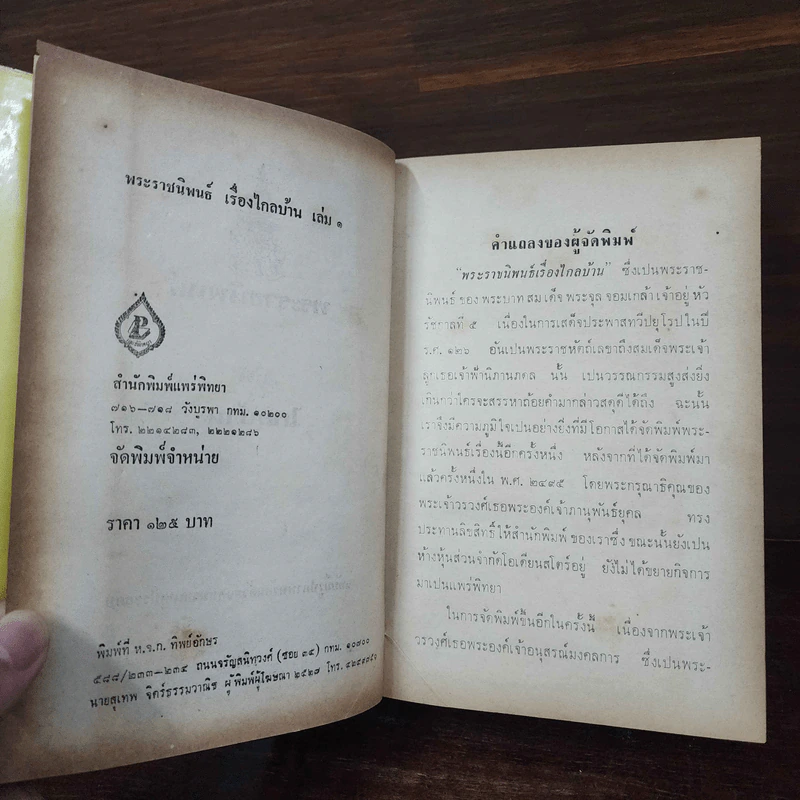 พระราชนิพนธ์ เรื่องไกลบ้าน เล่ม ๑
สำนักพิมพ์แพร่พิทยา
๗๑๖-๗๑๘ วังบูรพา กทม. ๑๐๒๐๐
โทร. ๒๒๑๔๒๘๓, ๒๒๒๑๒๘๖
จัดพิมพ์จำหน่าย
ราคา ๑๒๕ บาท
พิมพ์ที่ ห.จ.ก. ทิพย์อักษร
๕๘๘/๒๓๓-๒๓๔ ถนนจรัญสนิทวงศ์ (ซอย ๓๔) กทม. ๑๐๗๐๐
นายสุเทพ จิตร์ธรรมวาณิช ผู้พิมพ์ผู้โฆษณา ๒๕๒๘ โทร.
คำแถลงของผู้จัดพิมพ์
"พระราชนิพนธ์เรื่องไกลบ้าน" ซึ่งเป็นพระราช-
นิพนธ์ ของ พระบาท สมเด็จ พระจุล จอมเกล้า เจ้าอยู่ หัว
รัชกาลที่ ๕ เนื่องในการเสด็จประพาสทวีปยุโรปในปี
ร.ศ. ๑๒๖ อันเป็นพระราชหัตถ์เลขาถึงสมเด็จพระเจ้า
ลูกเธอเจ้าฟ้านิภานภดล นั้น เป็นวรรณกรรมสูงส่งยิ่ง
เกินกว่าใครจะสรรหาถ้อยคำมากล่าวสดุดีได้ถึง ฉะนั้น
เราจึงมีความภูมิใจเป็นอย่างยิ่งที่มีโอกาสได้จัดพิมพ์พระ-
ราชนิพนธ์เรื่องนี้อีกครั้งหนึ่ง หลังจากที่ได้จัดพิมพ์มา
แล้วครั้งหนึ่งใน พ.ศ. ๒๔๙๕ โดยพระกรุณาธิคุณของ
พระเจ้าวรวงศ์เธอพระองค์เจ้าภานุพันธ์ยุคล ทรง
ประทานลิขสิทธิ์ ให้สำนักพิมพ์ ของเราซึ่ง ขณะนั้นยังเป็น
ห้างหุ้นส่วนจำกัดโอเดียนสโตร์อยู่ ยังไม่ได้ขยายกิจการ
มาเป็นแพร่พิทยา
ในการจัดพิมพ์ขึ้นอีกในครั้งนี้ เนื่องจากพระเจ้า
วรวงศ์เธอพระองค์เจ้าอนุสรณ์มงคลการ ซึ่งเป็นพระ-